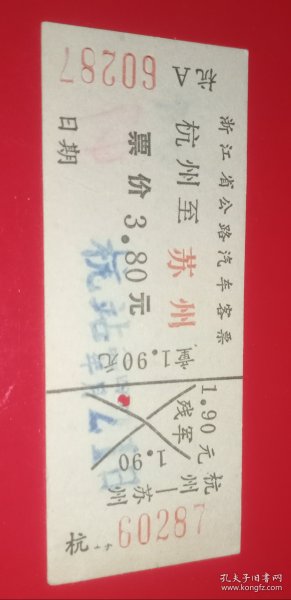 浙江省公路汽车客票
杭州至苏州
票价3.80元
日期
杭A 60287
1.90元
1.90元
残军
1.90
杭州—苏州
杭 60287
孔夫子旧书网